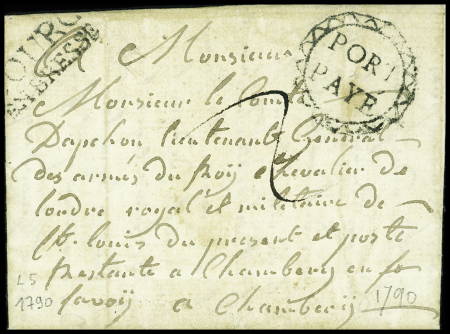 BOURG
EN BRESSE
PORT
PAYÉ
Monsieur
Monsieur le Comte
Dapchon lieutenant General
des armés du Roÿ Chevalier de
lordre royal et militaire de
St. louis du present et poste
Restante a Chamberÿ en
Savoÿ a Chamberÿ
L5
1790
1790